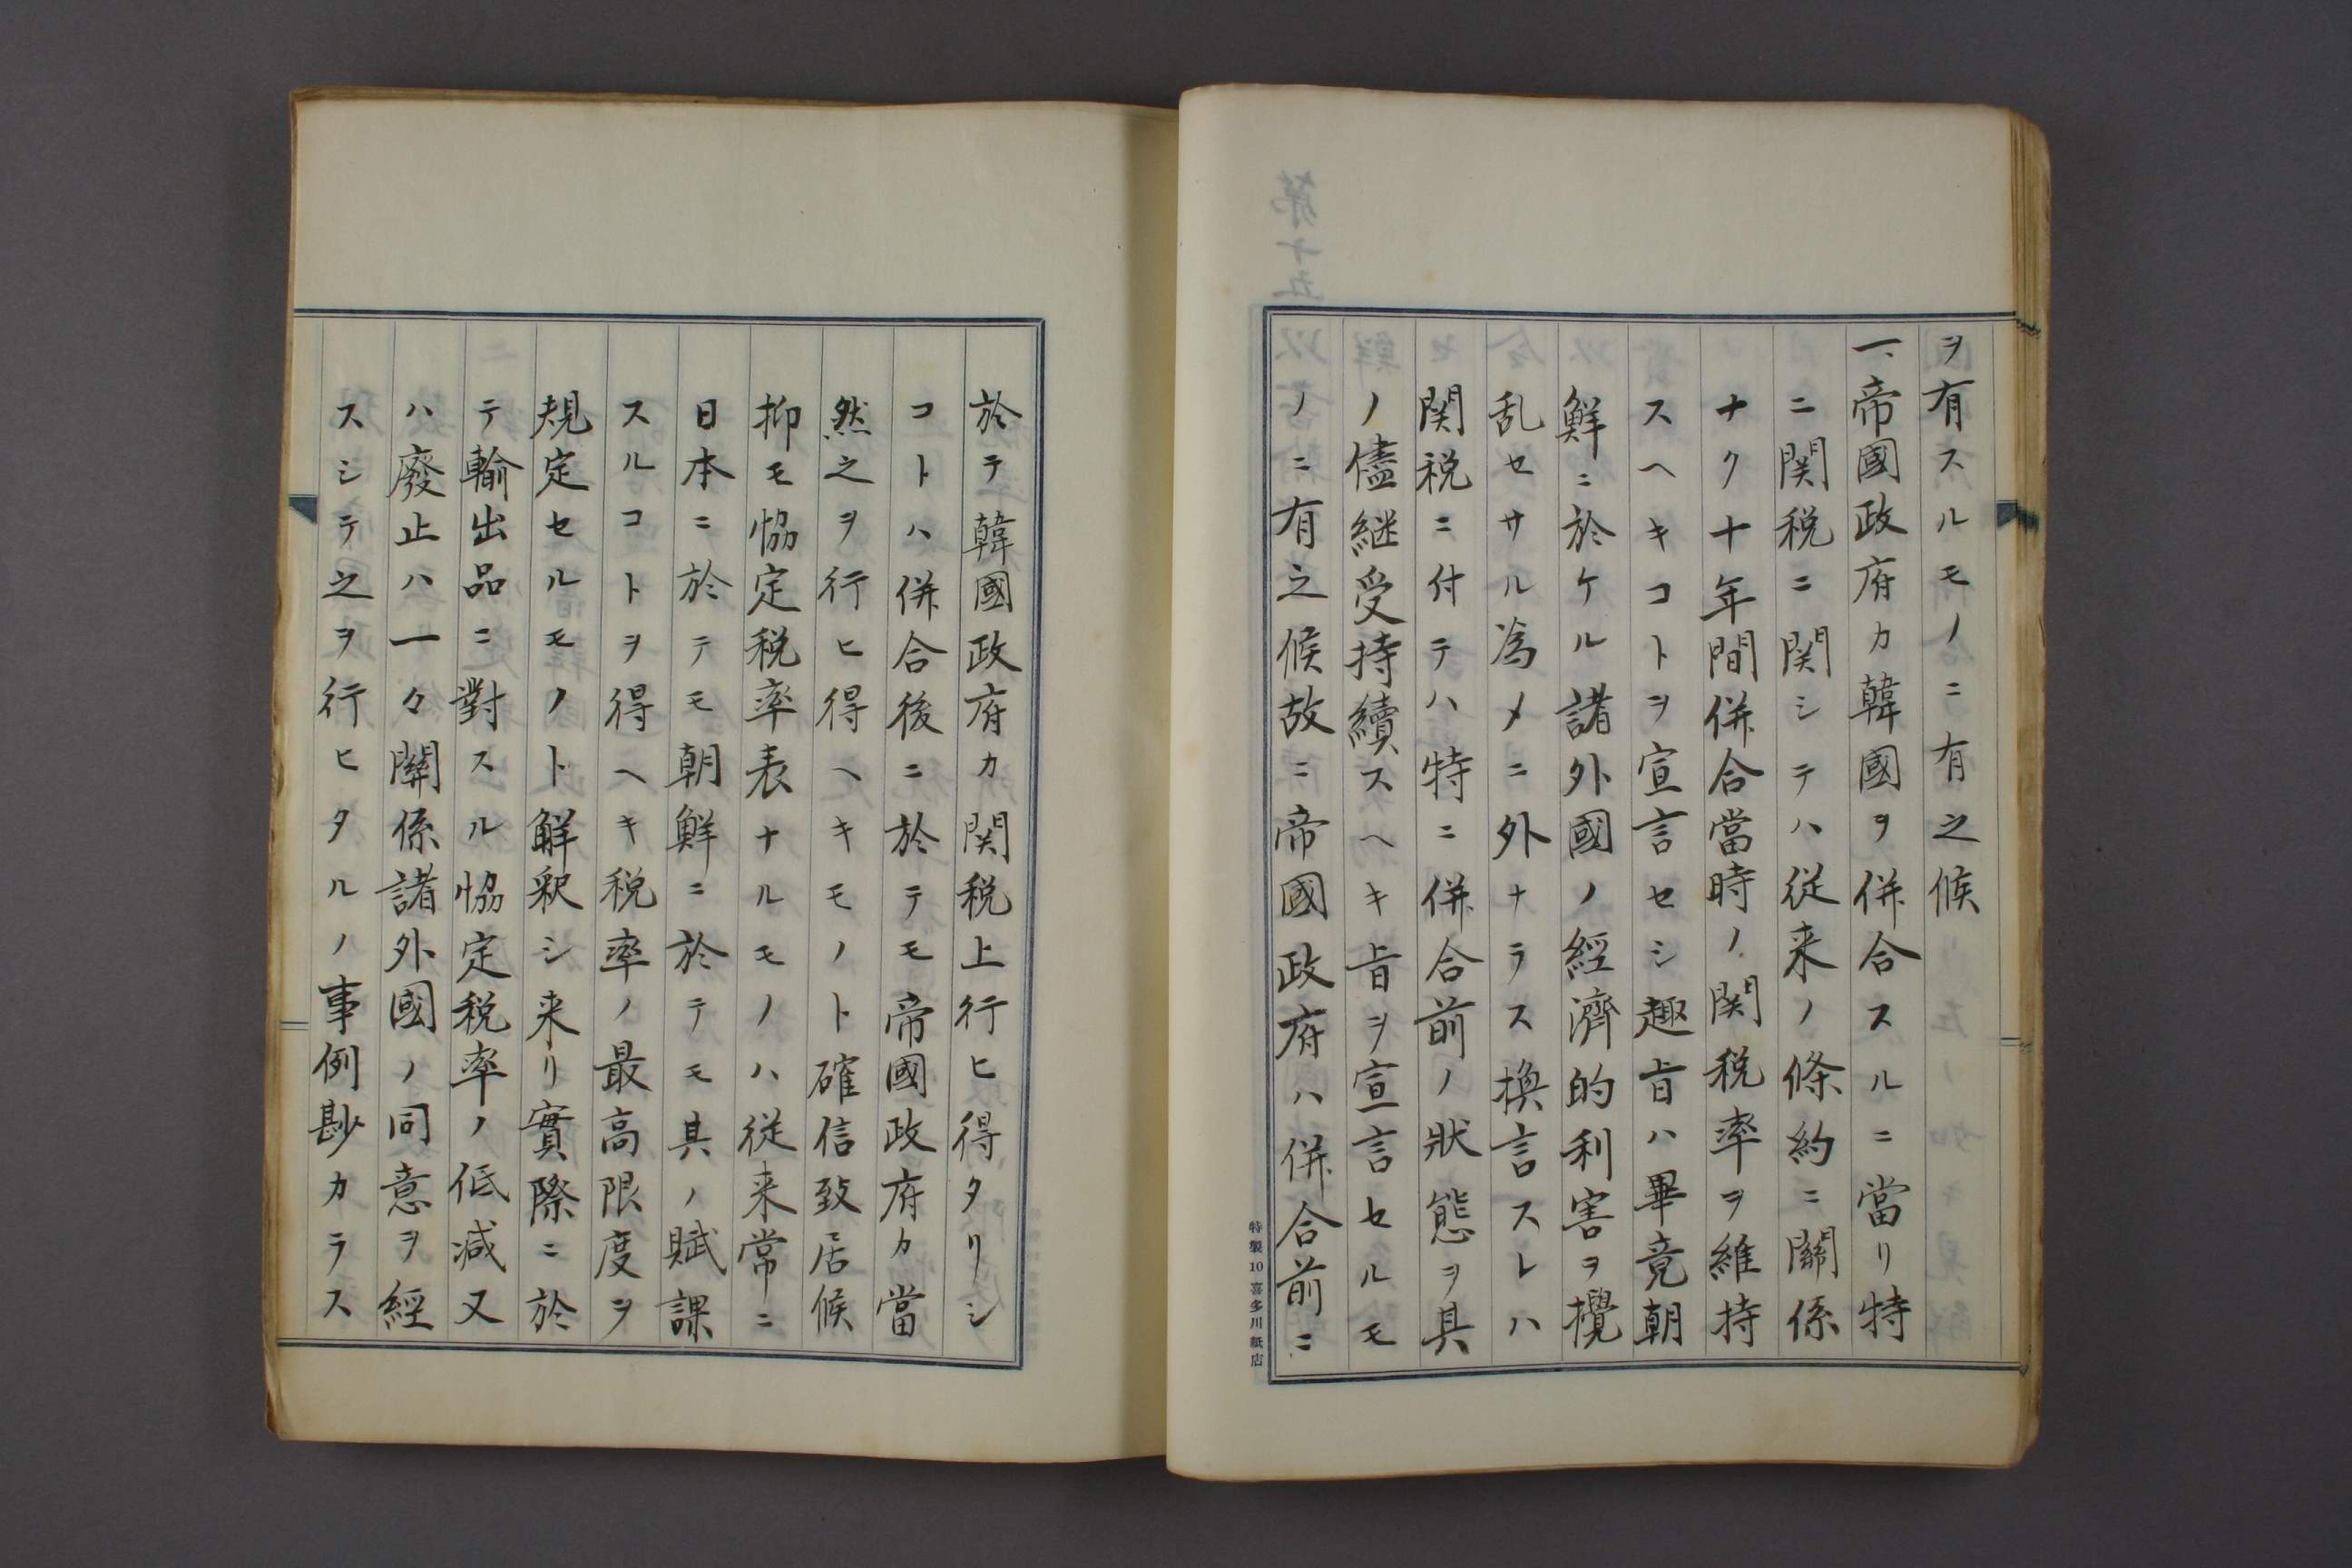 ヲ有スルモノニ有之候
一、帝國政府カ韓國ヲ併合スルニ當リ特
ニ関税ニ関シテハ従来ノ條約ニ關係
ナク十年間併合當時ノ関税率ヲ維持
スヘキコトヲ宣言セシ趣旨ハ畢竟朝
鮮ニ於ケル諸外國ノ經濟的利害ヲ攪
乱セサル為メニ外ナラス換言スレハ
関税ニ付テハ特ニ併合前ノ狀態ヲ具
ノ儘継受持續スヘキ旨ヲ宣言セルモ
ノニ有之候故ニ帝國政府ハ併合前ニ
特製10 喜多川紙店
於テ韓國政府カ関税上行ヒ得タリシ
コトハ併合後ニ於テモ帝國政府カ當
然之ヲ行ヒ得ヘキモノト確信致居候
抑モ恊定税率表ナルモノハ従来常ニ
日本ニ於テモ朝鮮ニ於テモ具ノ賦課
スルコトヲ得ヘキ税率ノ最高限度ヲ
規定セルモノト解釈シ来リ實際ニ於
テ輸出品ニ對スル恊定税率ノ低減又
ハ廢止ハ一々關係諸外國ノ同意ヲ經
スシテ之ヲ行ヒタルノ事例尠カラス